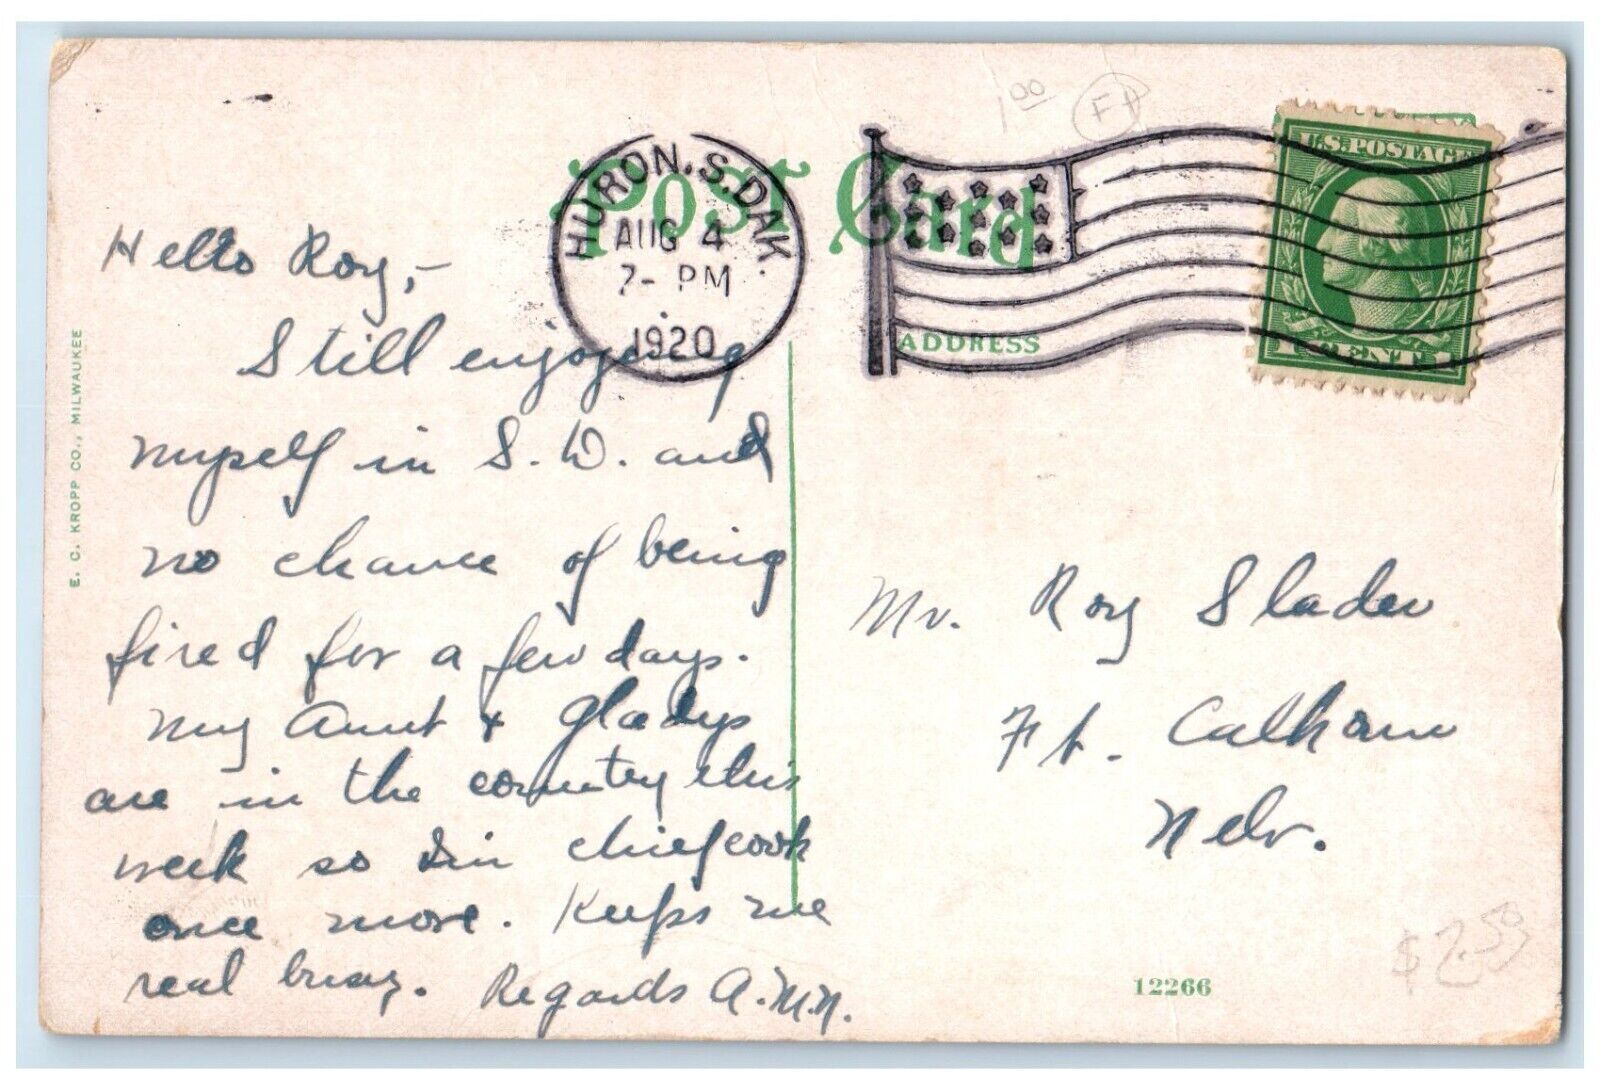 1.00 Ft
Post Card
HURON, S. DAK.
AUG 4
7 - PM
1920
U.S. POSTAGE
1 CENT 1
ADDRESS
Hello Roy, -
Still enjoying
myself in S. D. and
no chance of being
fired for a few days.
My Aunt & Gladys
are in the country this
week so I'm chief cook
once more. Keeps me
real busy. Regards A.M.N.
E. C. KROPP CO., MILWAUKEE
Mr. Roy Slader
Ft. Calhoun
Nebr.
12266
$2.50